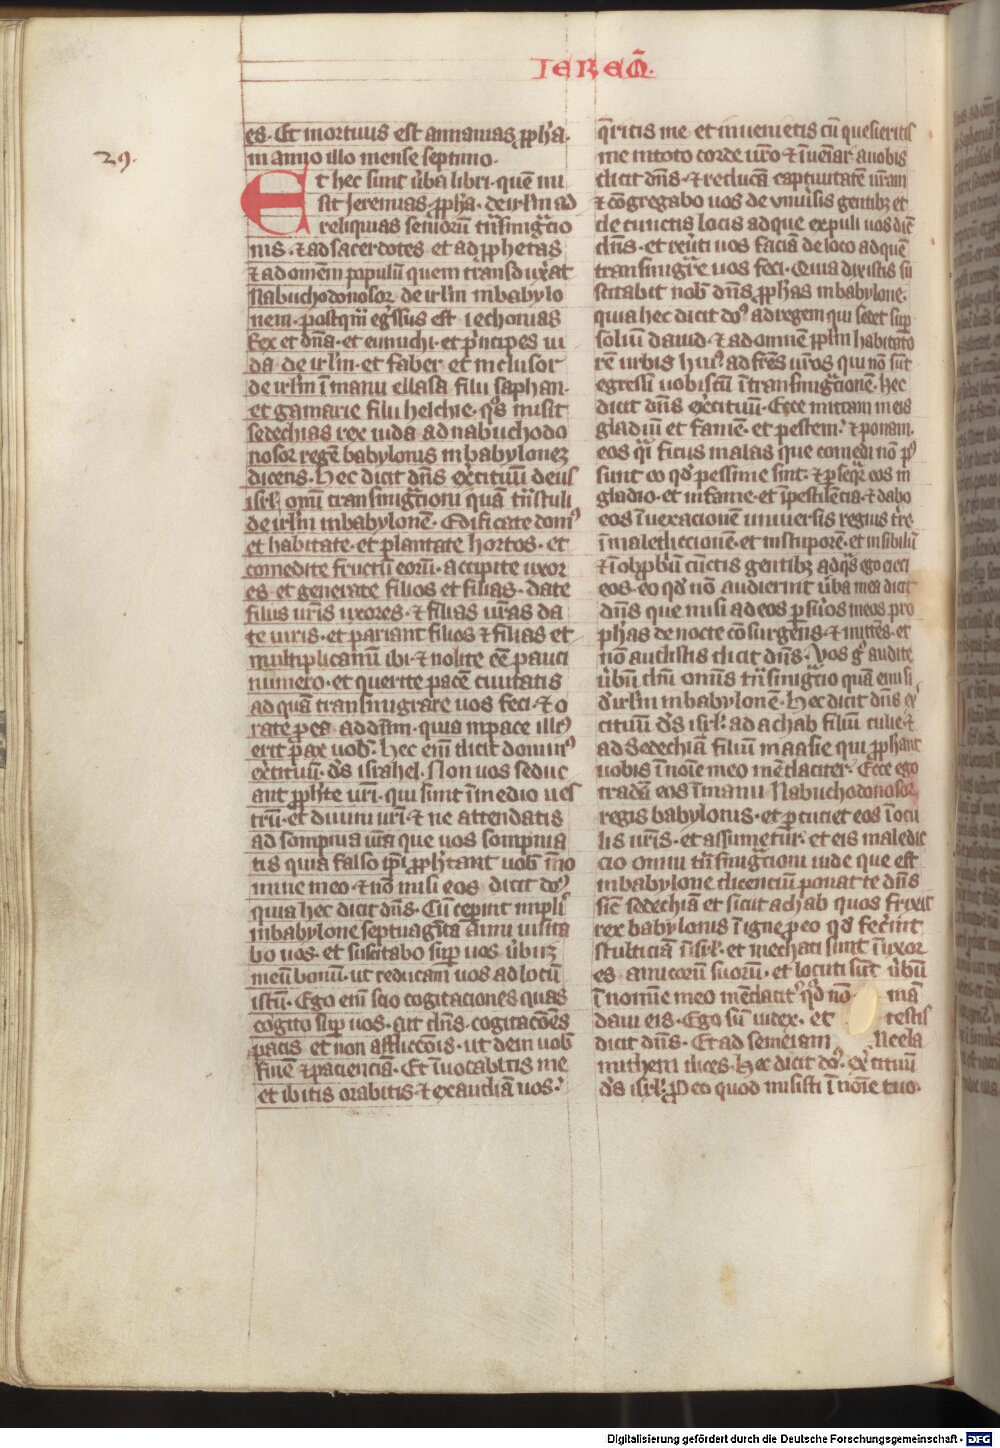 IEREM̄.
29.
es. Et mortuus est annanias ꝓph̄a.
in anno illo mense septimo.
Et hec sunt ũba libri. quē mi
sit Jeremias ꝓph̄a. de irl̄m ad
reliquias seniorū tn̄smigͣcio
nis. ⁊ ad sacerdotes et ad ꝓphetas
⁊ ad omēm populū quem transduxͥat
Nabuchodonosor de irl̄m in babylo
nem. postqm̄ egˢsus est iechonias
Rex et dn̄a. et eunuchi. et pͥncipes iu
da de irl̄m. et faber et inclusor
de irl̄m ī manu ellasa filii saphan.
et gamarie filii helchie. qͦs misit
sedechias rex iuda ad nabuchodo
nosor regē babylonis in babylonez
dicens. Hec dicit dn̄s ex̄cituū deus
isrl̄. omī transmigͣcioni quā tn̄stuli
de irl̄m in babylonē. Edificate domꝰ
et habitate. et plantate hortos. et
comedite fructū eorū. accipite uxor
es et generate filios et filias. date
filiis ur̄is uxores. ⁊ filias ur̄as da
te uiris. et pariant filios ⁊ filias et
multiplicamī ibi. ⁊ nolite eē pauci
numero. et querite pacē ciuitatis
ad quā transmigrare uos feci. ⁊ o
rate ꝓ ea ad dn̄m. quia in pace illiꝰ
erit pax uob̄. Hec em̄ dicit dominꝰ
ex̄cituū. ds̄ israhel. Non uos seduc
ant ꝓph̄te ur̄i. qui sunt ī medio ues
tri. et diuini ur̄i. ⁊ ne attendatis
ad sompnia ur̄a que uos sompnia
tis quia falso ip̄i ꝓph̄tant uob̄ ī no
mine meo. ⁊ nō misi eos dicit dn̄s
quia hec dicit dn̄s. Cū cepint impli
in babylone septuagīta anni uisita
bo uos. et suscitabo suꝑ uos ũbuz
meū bonū. ut reducam uos ad locū
istū. Ego em̄ scio cogitaciones quas
cogito suꝑ uos. ait dn̄s. cogitacōes
pacis et non afflicc̄ōis. ut dem uob̄
finē ⁊ pacienciā. Et īuocabitis me
et ibitis orabitis. ⁊ exaudiā uos.
q̄ritis me et inuenietis cū quesieritis
me in toto corde ur̄o ⁊ īueniar a uobis
dicit dn̄s. ⁊ reducā captiuitatē ur̄am
⁊ cōgregabo uos de uniuͥsis gentibꝫ et
de cunctis locis ad que expuli uos dic̄
dn̄s. et reūti uos faciā de loco ad quē
transmigr̄re uos feci. Quia dixistis su
scitabit nob̄ dn̄s ꝓphas in babylone.
quia hec dicit dn̄s ad regem qui sedet suꝑ
solium dauid. ⁊ ad omnē ppl̄m habitato
rē urbis huiꝰ ad fr̄es ur̄os qui nō sūt
egressi uobiscū ī transmigͣcionē. hec
dicit dn̄s ex̄cituū. Ecce mittam in eis
gladiū et famē. et pestem. ⁊ ponam
eos qͣi ficus malas que comedi nō pn̄t
sunt eo qd̄ pessime sint. ⁊ ꝑseqͣr eos in
gladio. et in fame. et ī pestilēcia. ⁊ dabo
eos ī uexacionē uniuersis regnis tr̄e.
ī maledictionē. et in stuporē. et in sibilū
⁊ ī obꝓbͥū cūctis gentibꝫ ad qͣs ego eieci
eos. eo qd̄ nō audierint ũba mea dicit
dn̄s que misi ad eos ꝑ suͦs meos pro
phas de nocte cōsurgens. ⁊ mittēs. et
nō audistis dicit dn̄s. Vos gͦ audite
ũbū dn̄i omīs tn̄smigͣcio quā emisi
d̄ irl̄m in babylonē. Hec dicit dn̄s ex̄
cituū ds̄ isrl̄. ad achab filiū culie. ⁊
ad Sedechiā filiū maasie qui ꝓph̄ant
uobis ī noīe meo mēdaciter. Ecce ego
tradā eos ī manu Nabuchodonosor
regis babylonis. et ꝑcuciet eos ī ocu
lis ur̄is. et assumetur. et eis maledic
cio omni tn̄smigͣcioni iude que est
in babylone dicenciū ponat te dn̄s
sic̄ sedechiā et sicut achab quos frixit
rex babylonis ī igne ꝓ eo qd̄ fecͥint
stulticiā ī isrl̄. et mechati sunt ī uxor
es amicorū suorū. et locuti sūt ũbū
ī nomīe meo mēdacitͥ. qd̄ nō mā
daui eis. Ego sū iudex. et testis
dicit dn̄s. Et ad semeiam Neela
mithem dices. Hec dicit dn̄s ex̄cituū
ds̄ isrl̄. ꝓ eo quod misisti ī noīe tuo.
Digitalisierung gefördert durch die Deutsche Forschungsgemeinschaft - DFG